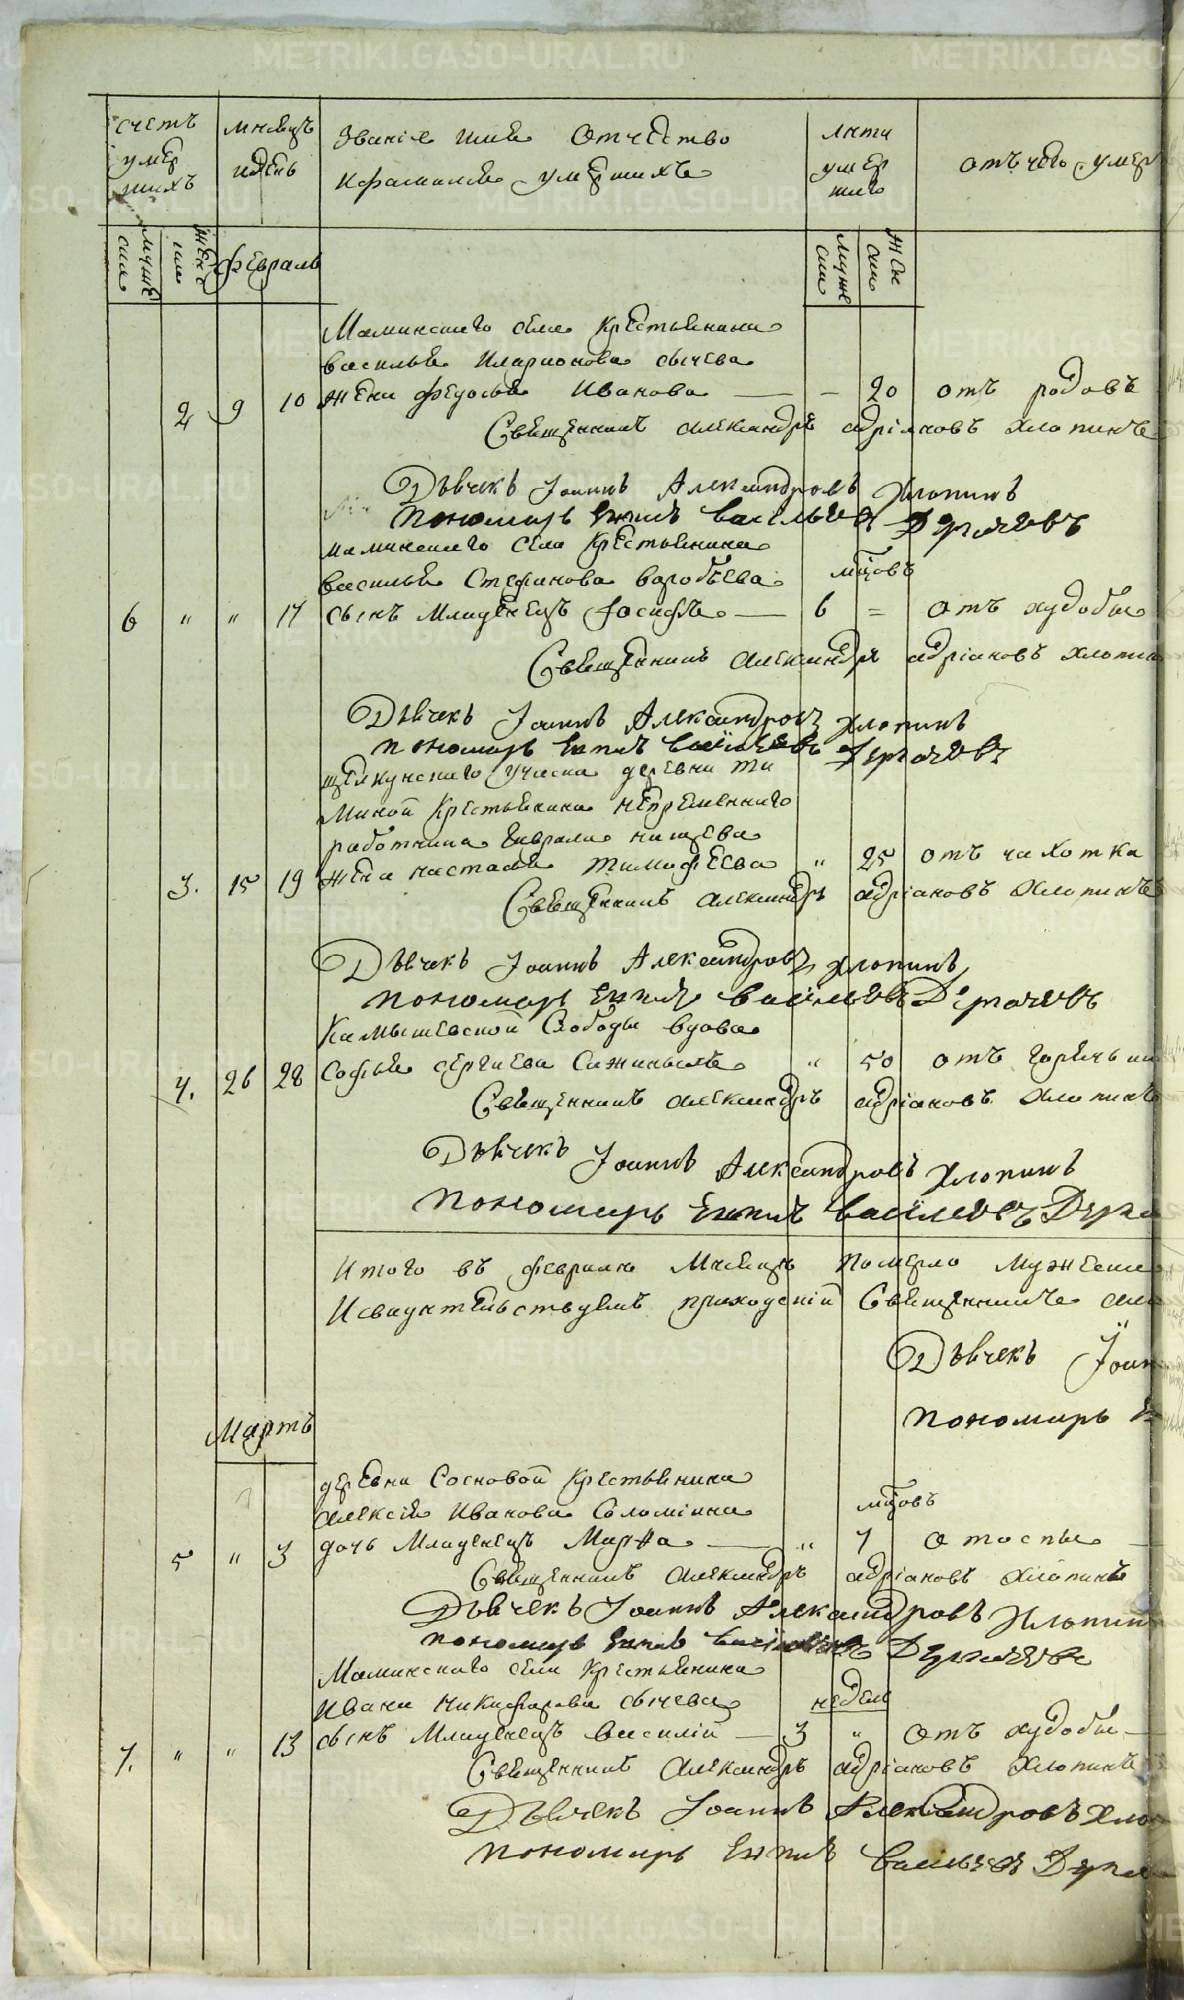 счетъ умер шихъ
мнсецъ идень
Званіе имя Отчество
ифамилие умершихъ
лета умер шаго
отъ чего умер
муже ска
женс ка
февраль
муже ска
женс ка
Маминскаго села Крестьянина
василья Иларионова сычева
2 9 10 жена федосья Иванова — – 20 отъ родовъ
Священникъ александръ адріановъ Хлопинъ
Дьячекъ Іоаннъ Александровъ Хлопинъ
Пономарь васильевъ Дергачевъ
маминскаго села Крестьянина
василья Стефанова воробьева мцовъ
6 " " 17 сынъ младенецъ Іосифъ — 6 = отъ худобы
Священникъ александръ адріановъ хлопин
Дьячекъ Іоаннъ Александровъ Хлопинъ
пономарь васильевъ Дергачевъ
щелкунскаго деревни
Крестьянина непременнаго
работника
3. 15 19 жена настасья тимофеева " 25 отъ чахотка
Священникъ александръ адріановъ Хлопинъ
Дьячекъ Іоаннъ Александровъ Хлопинъ
пономарь васильевъ Дергачевъ
Камышевской Слободы вдова
4. 26 28 Софья сергиева " 50 отъ горячьки
Священникъ александръ адріановъ Хлопинъ
Дьячекъ Іоаннъ Александровъ Хлопинъ
Пономарь васильевъ Дерга
Итого въ феврале Месяце померло Мужеска
Исвидетельствуемъ приходскій Священникъ але
Дьячекъ Іоан
пономарь
Мартъ
деревни Сосновой Крестьянина
алексія Иванова Соломіина мцовъ
5 " 3 дочь младенецъ Марѳа — " 7 отоспы
Священникъ александръ адріановъ Хлопинъ
Дьячекъ Іоаннъ Александровъ Хлопинъ
пономарь васильевъ Дергачевъ
Маминскаго села Крестьянина
Ивана никифорова сычева недел
7. " " 13 сынъ младенецъ василій — 3 " отъ худобы —
Священникъ александръ адріановъ Хлопинъ
Дьячекъ Іоаннъ Александровъ Хло
пономарь васильевъ Дерга
METRIKI.GASO-URAL.RU